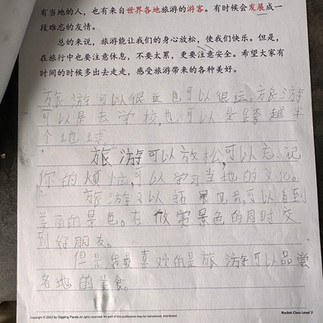 有当地的人，也有来自世界各地旅游的游客。有时候会发展成一
段难忘的友情。
总的来说，旅游能让我们的身心放松，使我们快乐。但是，
在旅行中也要注意休息，不要太累，更要注意安全。希望大家有
时间的时候多出去走走，感受旅游带来的各种美好。
旅游可以很近也可以很远。旅游
可以是去学校也可以是跨越半
个地球。
旅游可以放松，可以忘记
你的烦恼，可以学习当地的文化。
旅游可以看到
美丽的景色。在欣赏景色的同时交
到好朋友。
但是我最喜欢的是旅游可以品尝
各地的美食。
Copyright © 2022 by Giggling Panda. All rights reserved.
Rocket Class Level 7